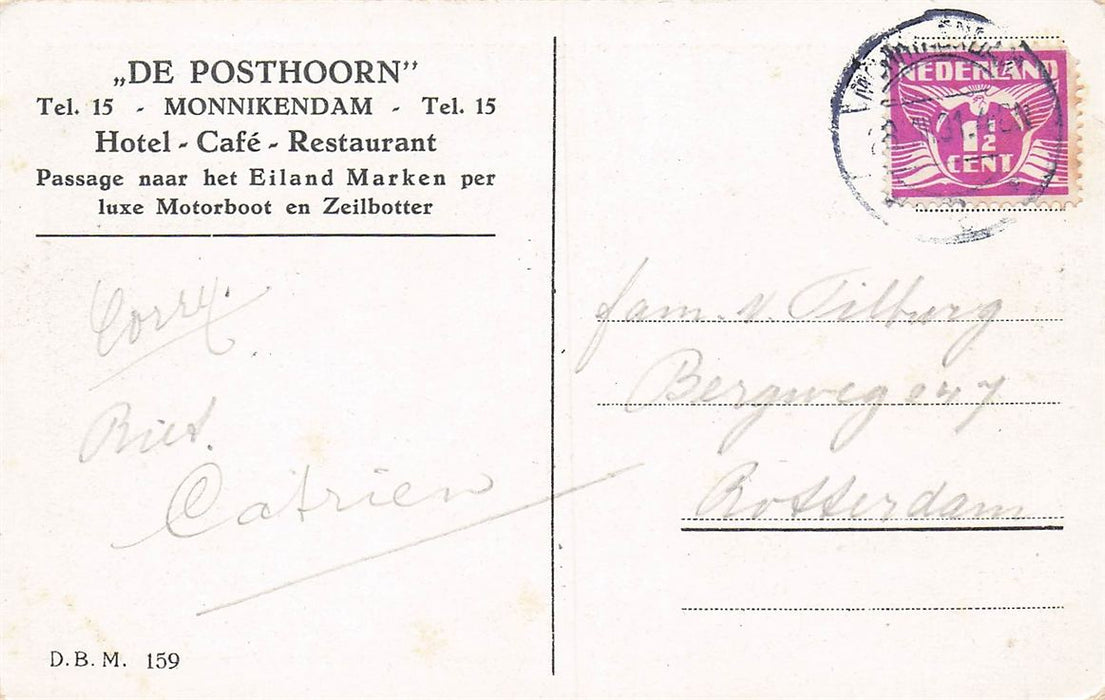 „DE POSTHOORN”
Tel. 15 - MONNIKENDAM - Tel. 15
Hotel - Café - Restaurant
Passage naar het Eiland Marken per
luxe Motorboot en Zeilbotter
Corry.
Riet.
Catrien
D.B.M. 159
NEDERLAND
1½
CENT
fam. v. Tilburg
Bergweg
Rotterdam